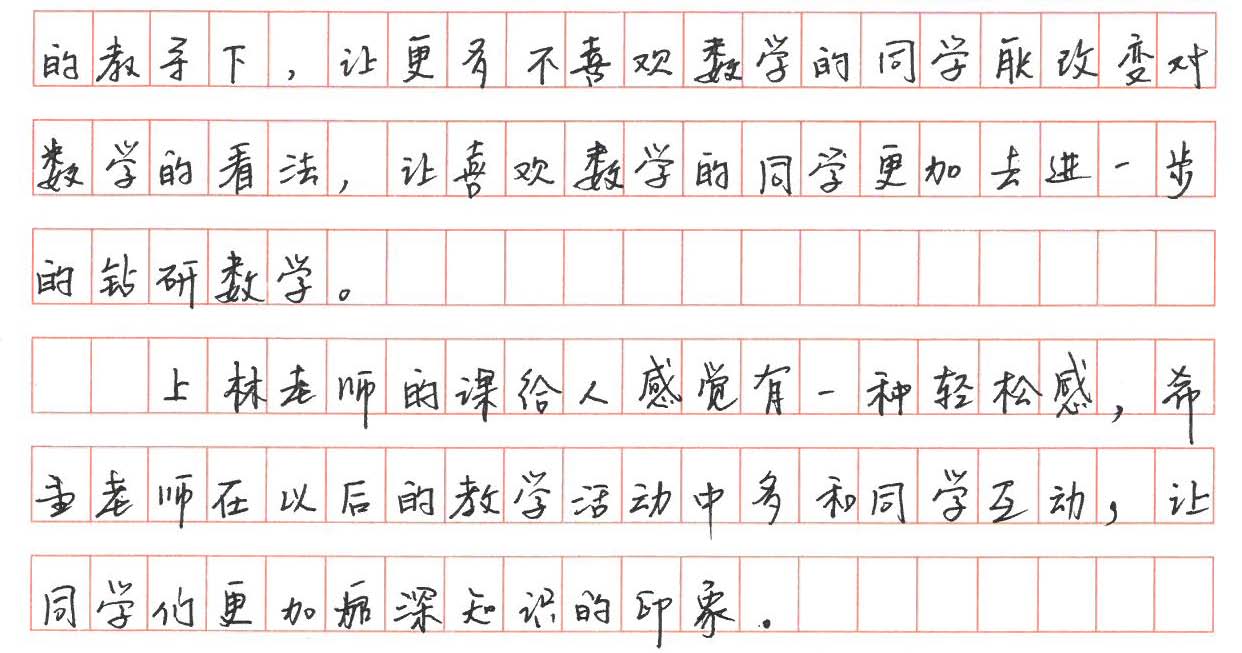 的教导下，让更多不喜欢数学的同学能改变对
数学的看法，让喜欢数学的同学更加去进一步
的钻研数学。
上林老师的课给人感觉有一种轻松感，希
望老师在以后的教学活动中多和同学互动，让
同学们更加加深知识的印象．